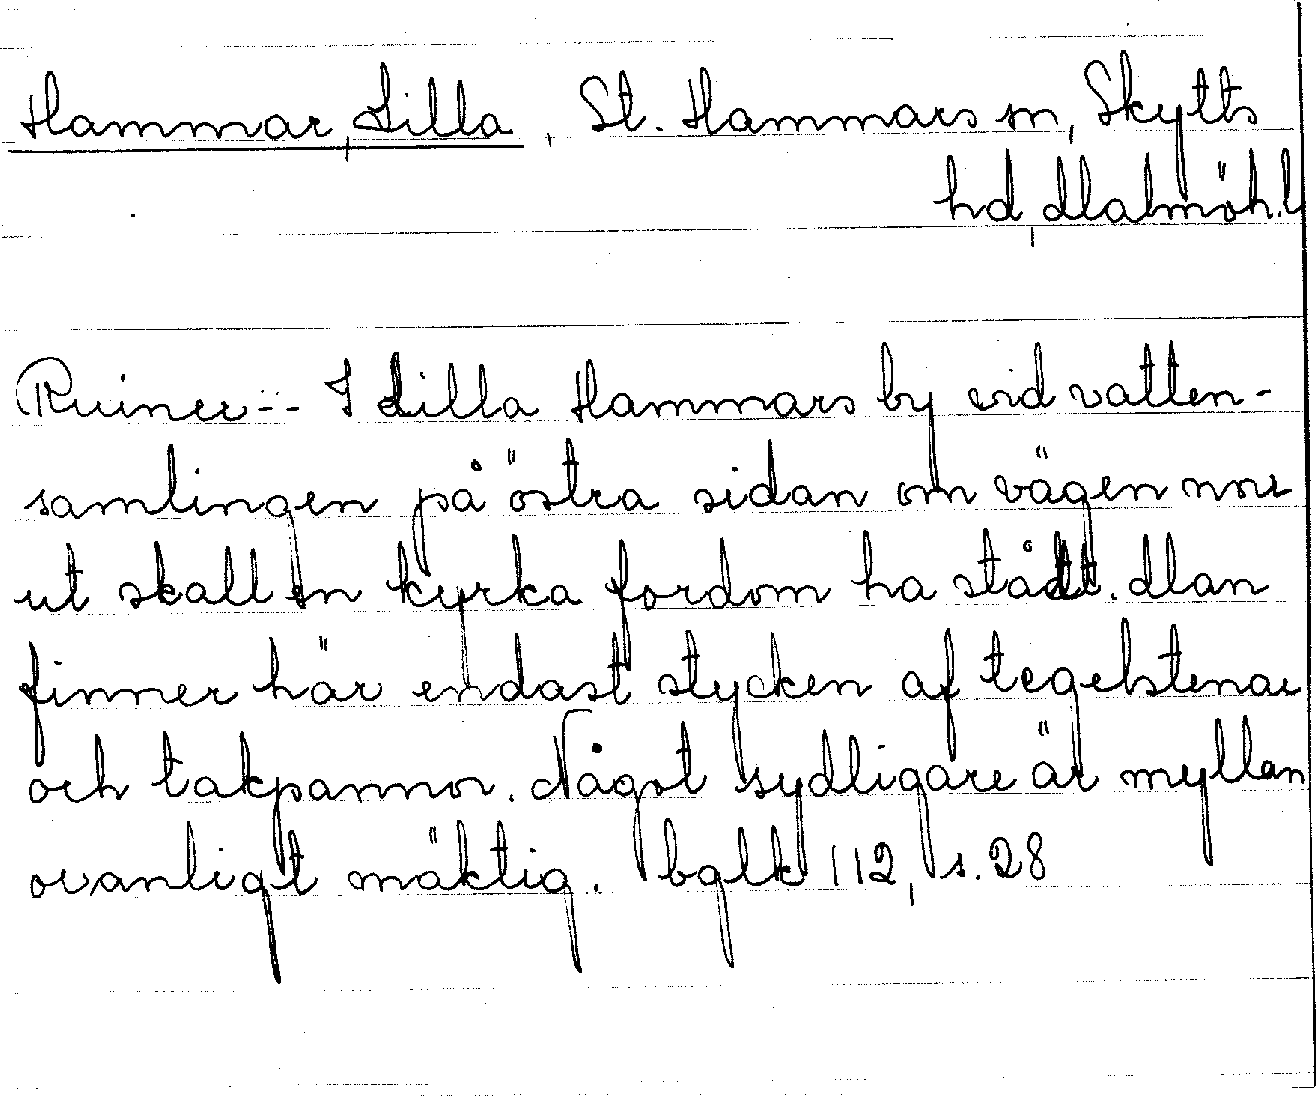 Hammar, Lilla, St. Hammars sn, Skytts
hd, Malmöh. l
Ruiner -- I Lilla Hammars by vid vatten-
samlingen på östra sidan om vägen norr
ut skall en kyrka fordom ha stått. Man
finner här endast stycken af tegelstenar
och takpannor. Något sydligare är myllan
ovanligt mäktig. bglk 112, s. 28